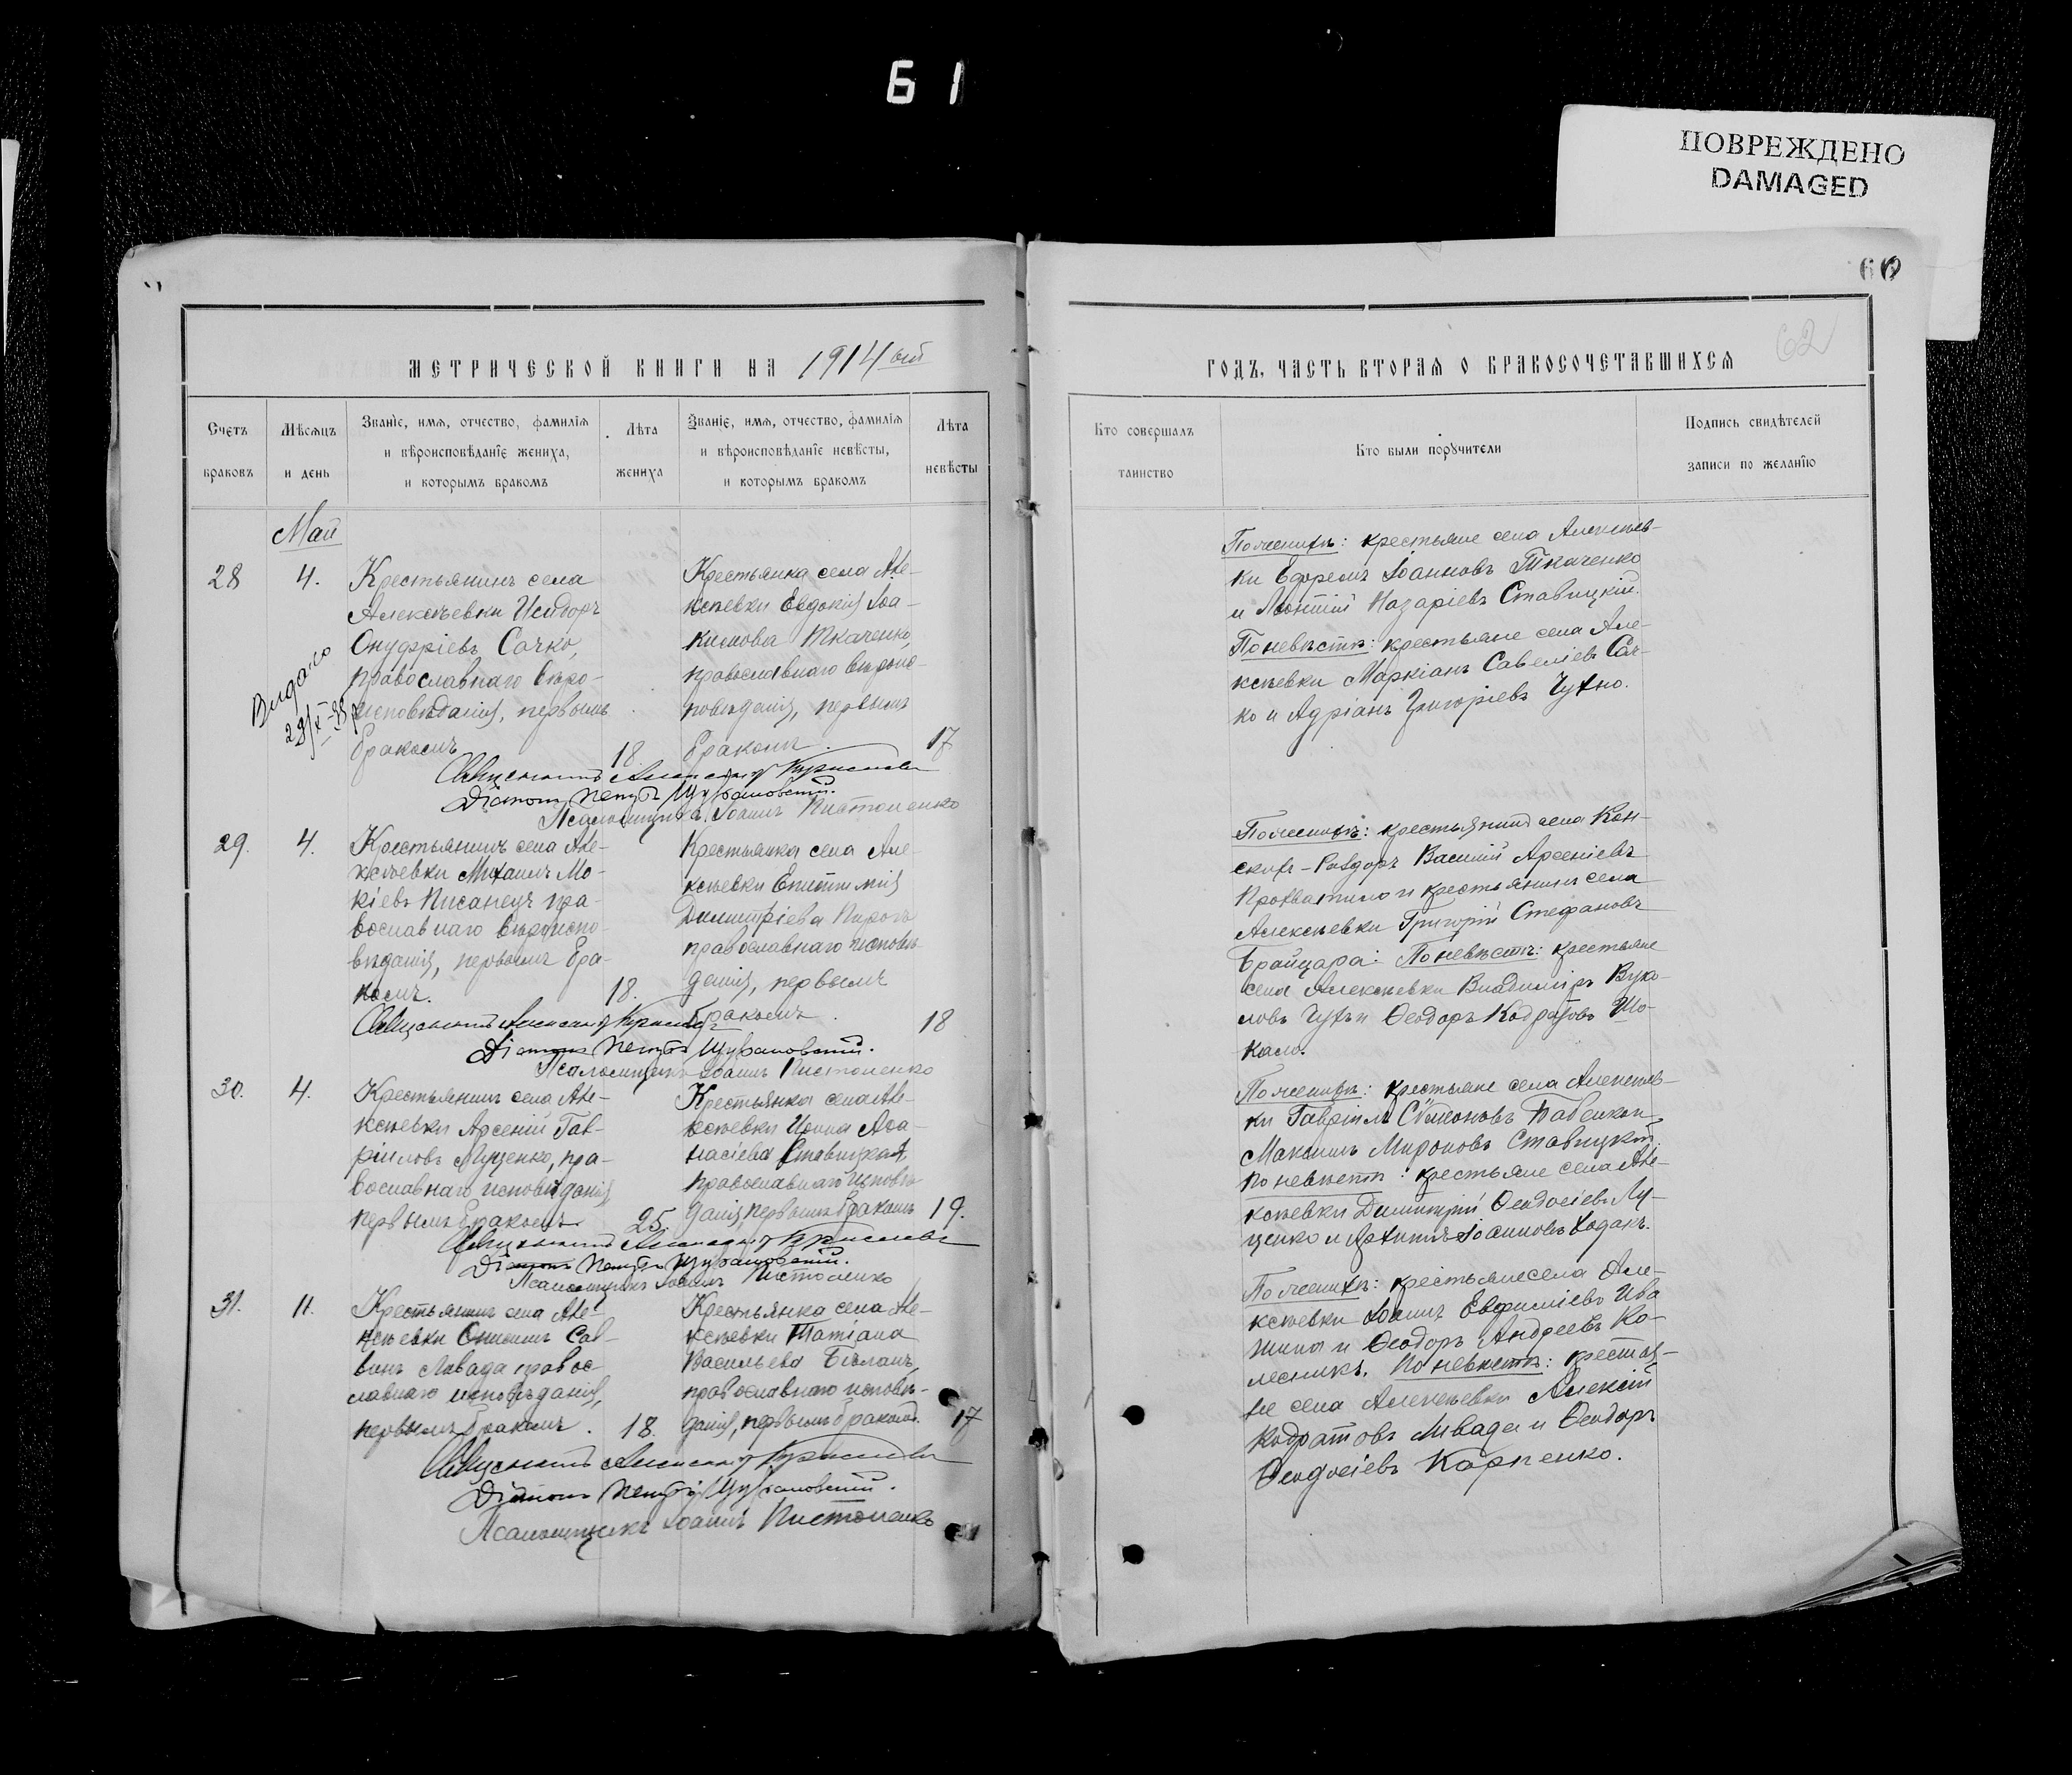 61
ПОВРЕЖДЕНО
DAMAGED
66
62
МЕТРИЧЕСКОЙ КНИГИ НА 1914 ый
ГОДЪ, ЧАСТЬ ВТОРАЯ О БРАКОСОЧЕТАВШИХСЯ
Счетъ
браковъ
Мѣсяцъ
и день
Званіе, имя, отчество, фамилія
и вѣроисповѣданіе жениха,
и которымъ бракомъ
Лѣта
жениха
Званіе, имя, отчество, фамилія
и вѣроисповѣданіе невѣсты,
и которымъ бракомъ
Лѣта
невѣсты
Кто совершалъ
таинство
Кто были поручители
Подпись свидѣтелей
записи по желанію
Май
28
4.
Крестьянинъ села
Алексѣевки Исидоръ
Онуфріевъ Сачко,
православнаго вѣро-
исповѣданія, первымъ
бракомъ
18
Крестьянка села Але-
ксѣевки Евдокія Іоа-
кимова Ткаченко,
православнаго вѣроис-
повѣданія, первымъ
бракомъ.
17
Видано
Священникъ Александръ
Діаконъ Петръ Щубановскій.
Псаломщикъ Іоаннъ Пистоленко
По женихѣ: крестьяне села Алексѣев-
ки Ефремъ Іоанновъ Ткаченко
и Леонтій Назаріевъ Ставицкій.
По невѣстѣ: крестьяне села Але-
ксѣевки Маркіанъ Савеліевъ Сач-
ко и Адріанъ Григоріевъ Чухно.
29.
4.
Крестьянинъ села Але-
ксѣевки Михаилъ Мо-
кіевъ Писанецъ пра-
вославнаго вѣроиспо-
вѣданія, первымъ бра-
комъ.
18.
Крестьянка села Але-
ксѣевки Епистимія
Димитріева Пирогъ
православнаго исповѣ-
данія, первымъ
бракомъ.
18
Священникъ Александръ
Діаконъ Петръ Щубановскій.
Псаломщикъ Іоаннъ Пистоленко
По женихѣ: крестьянинъ села Кон-
скихъ-Раздоръ Василій Арсеніевъ
Прохватило и крестьянинъ села
Алексѣевки Григорій Стефановъ
Брайцара: По невѣстѣ: крестьяне
села Алексѣевки Владиміръ Вуко-
ловъ Чухъ и Ѳеодоръ Кодратовъ Шо-
кало.
30.
4.
Крестьянинъ села Але-
ксѣевки Арсеній Гав-
ріиловъ Луценко, пра-
вославнаго исповѣданія
первымъ бракомъ.
25.
Крестьянка села Але-
ксѣевки Ирина Аѳа-
насіева Ставицкая,
православнаго исповѣ-
данія, первымъ бракомъ
19.
Священникъ Александръ
Діаконъ Петръ Щубановскій.
Псаломщикъ Іоаннъ Пистоленко
По женихѣ: крестьяне села Алексѣев-
ки Гавріилъ Симеоновъ Бабенко и
Максимъ Мироновъ Ставицкій.
По невѣстѣ: крестьяне села Але-
ксѣевки Димитрій Ѳеодосіевъ Лу-
ценко и Архипъ Іоанновъ Ходакъ.
31.
11.
Крестьянинъ села Але-
ксѣевки Онисимъ Сав-
винъ Левада правос-
лавнаго исповѣданія,
первымъ бракомъ.
18.
Крестьянка села Але-
ксѣевки Татіана
Васильева Бѣланъ,
православнаго исповѣ-
данія, первымъ бракомъ.
17
Священникъ Александръ
Діаконъ Петръ Щубановскій.
Псаломщикъ Іоаннъ Пистоленко
По женихѣ: крестьяне села Але-
ксѣевки Іоаннъ Евфиміевъ Ива
и Ѳеодоръ Андреевъ Ко-
лесникъ. По невѣстѣ: крестья-
не села Алексѣевки Алексій
Кодратовъ Левада и Ѳеодоръ
Ѳеодосіевъ Карпенко.